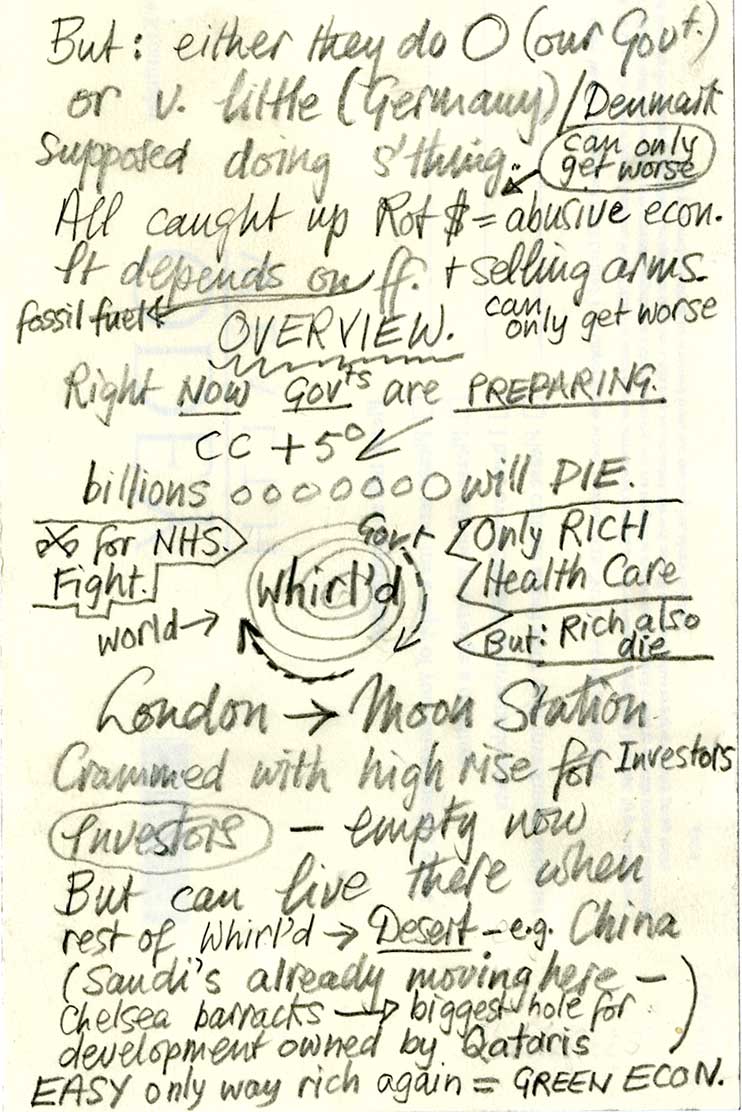 But: either they do O (our Govt.)
or v. little (Germany)/Denmark
supposed doing s'thing.
can only
get worse
All caught up Rot $ = abusive econ.
It depends on ff. + selling arms.
fossil fuel
can
only get worse
OVERVIEW.
Right NOW Govts are PREPARING.
CC + 5°
billions ooooooo will DIE.
for NHS.
Fight.
world →
Govt
Whirl'd
Only RICH
Health Care
But: Rich also
die
London → Moon Station
Crammed with high rise for Investors
Investors — empty now
But can live there when
rest of Whirl'd → Desert – e.g. China
(Saudi's already moving here —
Chelsea barracks → biggest hole for
development owned by Qataris)
EASY only way rich again = GREEN ECON.